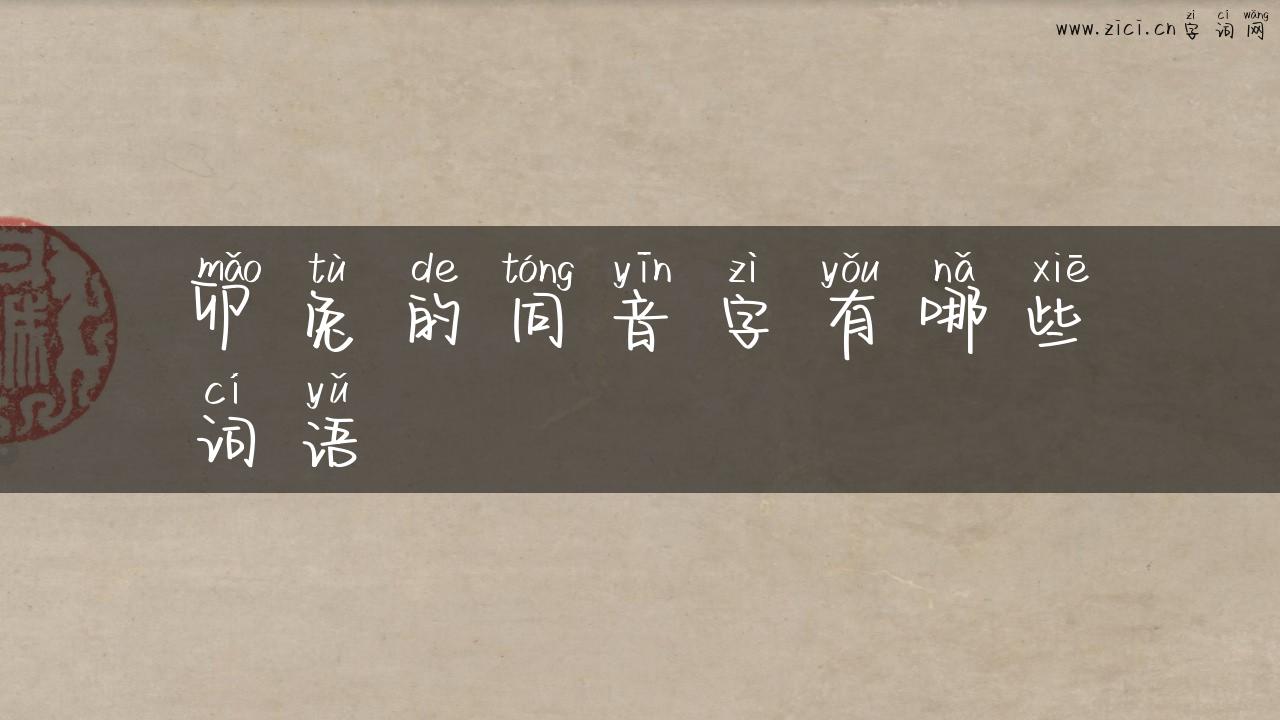 zì cí wǎng
www.zici.cn字词网
mǎo tù de tóng yīn zì yǒu nǎ xiē
卯兔的同音字有哪些
cí yǔ
词语